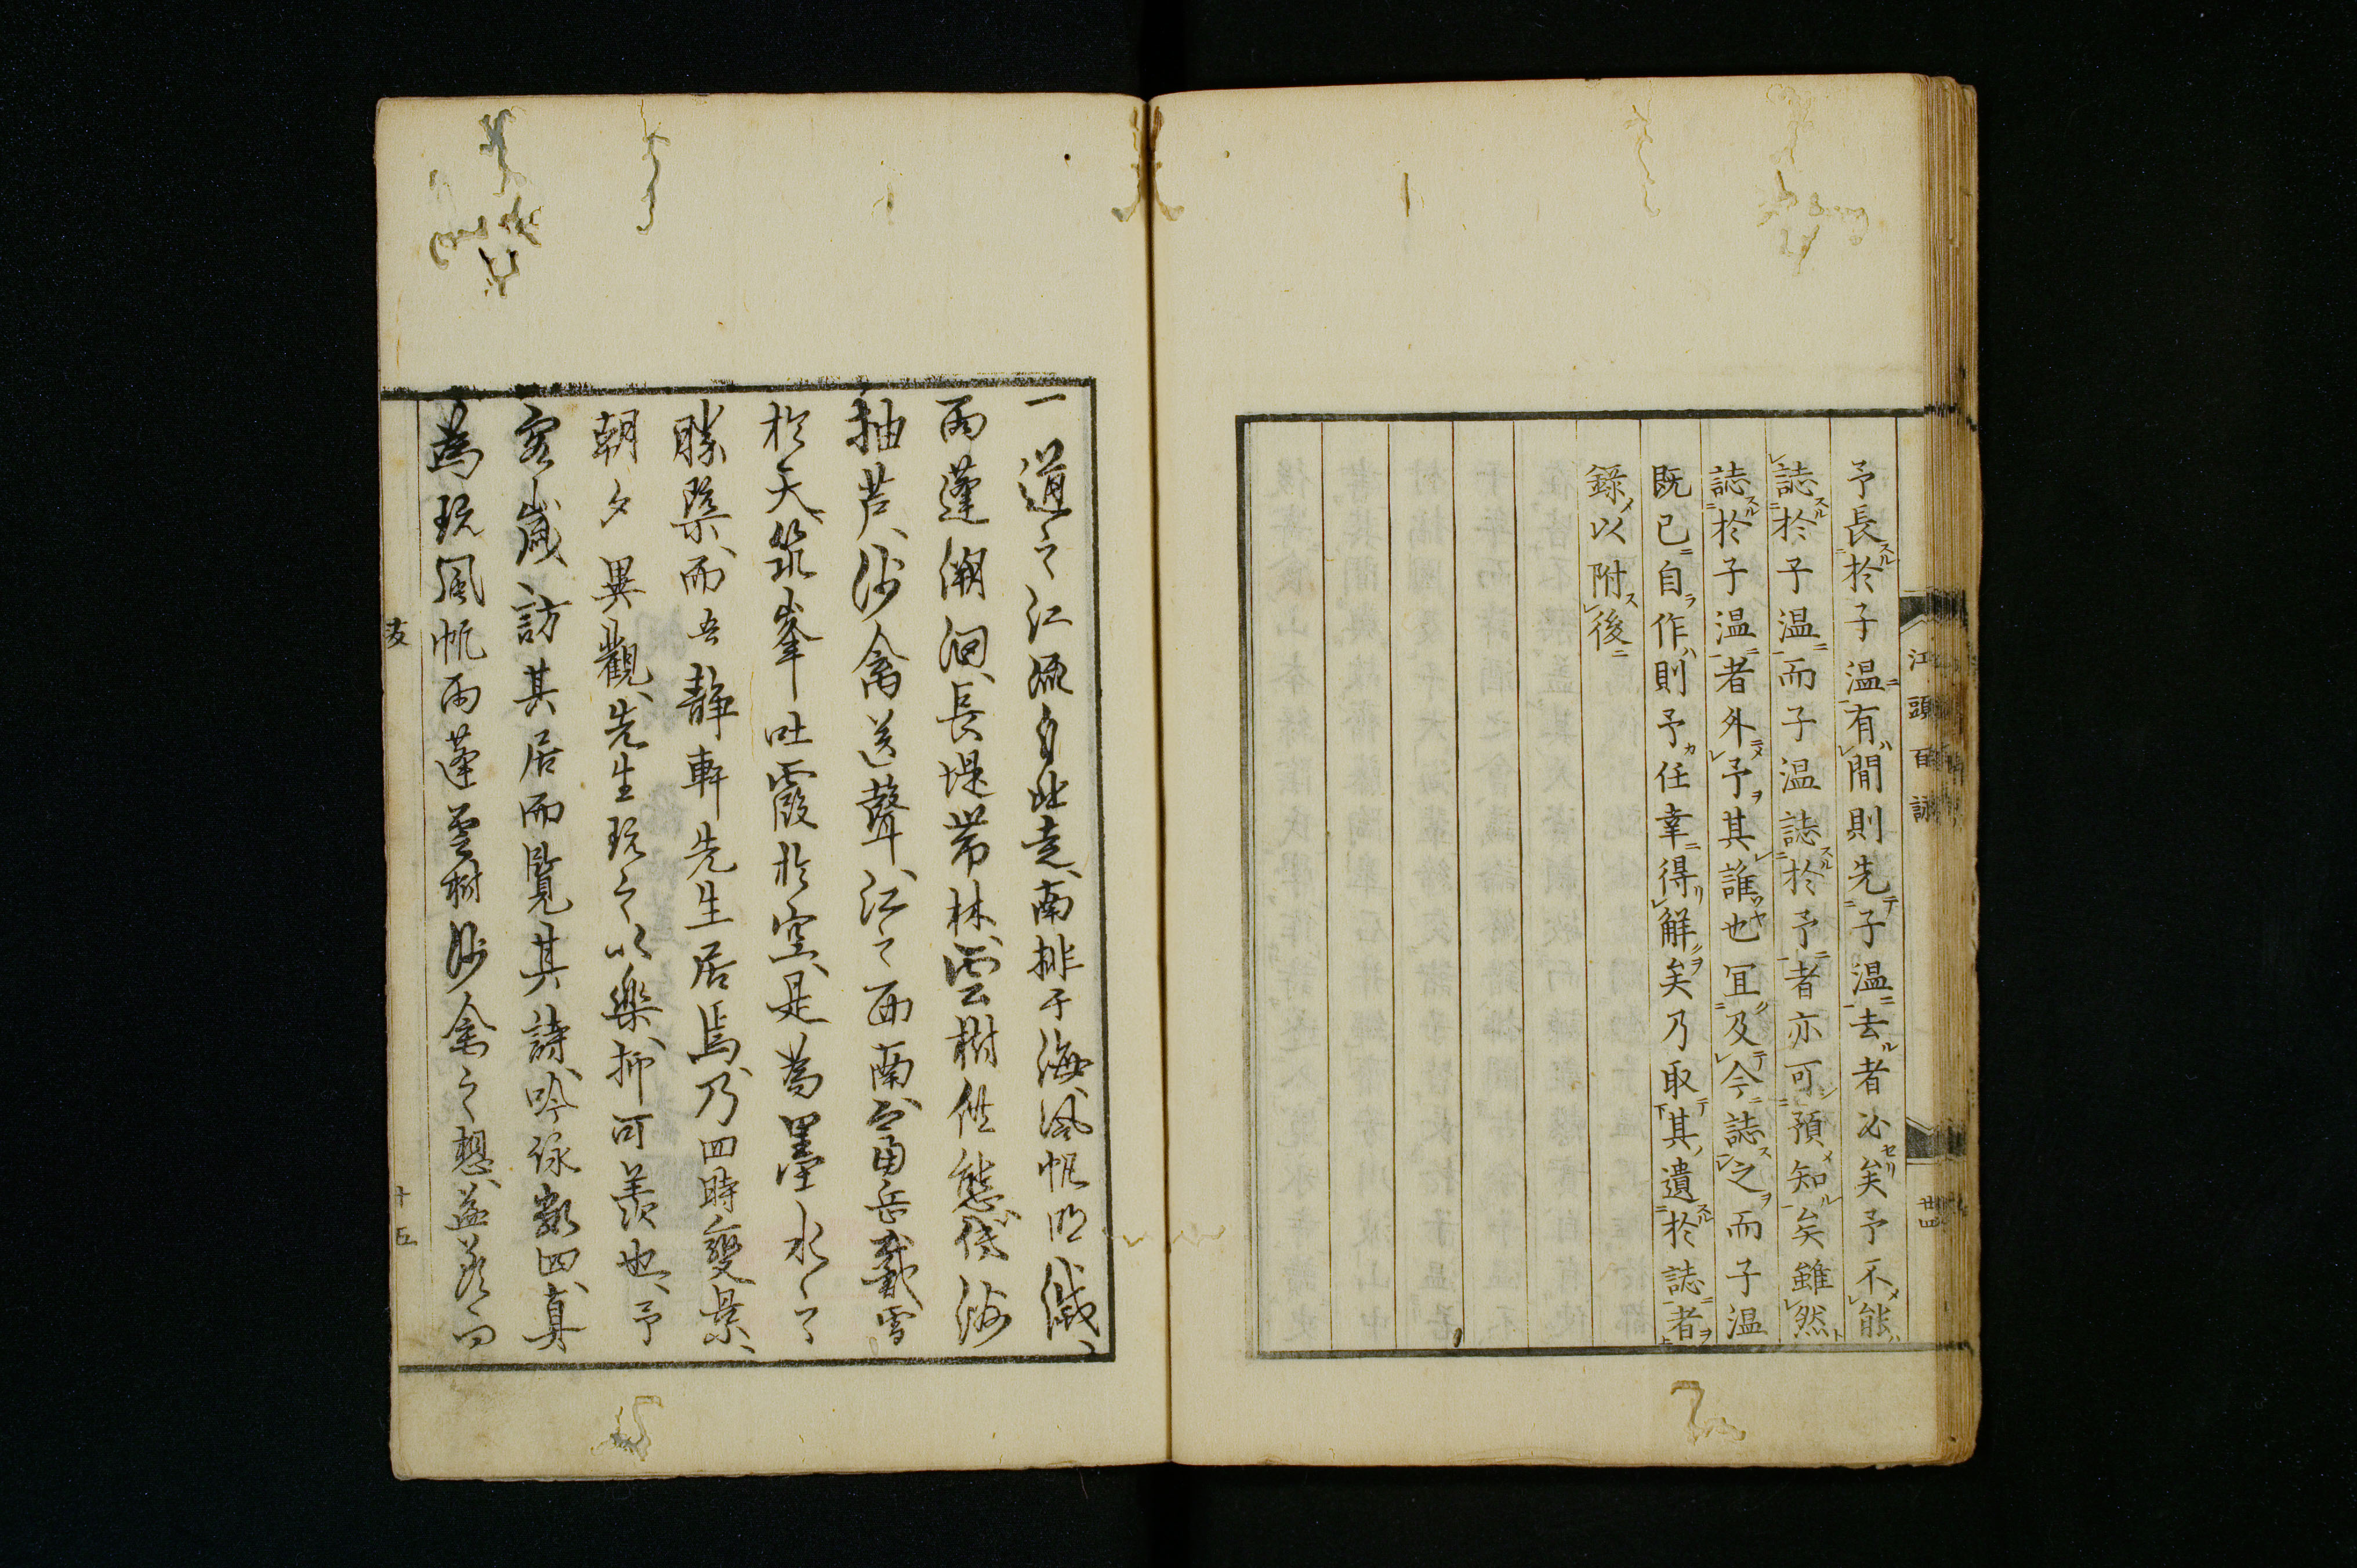 予長於子温有間則先子温去者必矣予不能
誌於子温而子温誌於予者亦可預知矣雖然
誌於子温者外予其誰也冝及今誌之而子温
既已自作則予任幸得解矣乃取其遺於誌者
錄以附後
江頭百詠
廿四
一道之江流自北走南排于海風帆明滅
雨蓬溯洄長堤帯林雲樹供態伐海
抽芦沙禽送聲江之西南富岳戴雪
於天筑峯吐霞於空是為墨水之
勝槩而吾静軒先生居焉乃四時變景
朝夕異觀先生玩之以樂抑可羨也予
客歳訪其居而覧其詩吟詠數四真
為玩風帆雨蓬雲樹沙禽之想益羨
友
十五